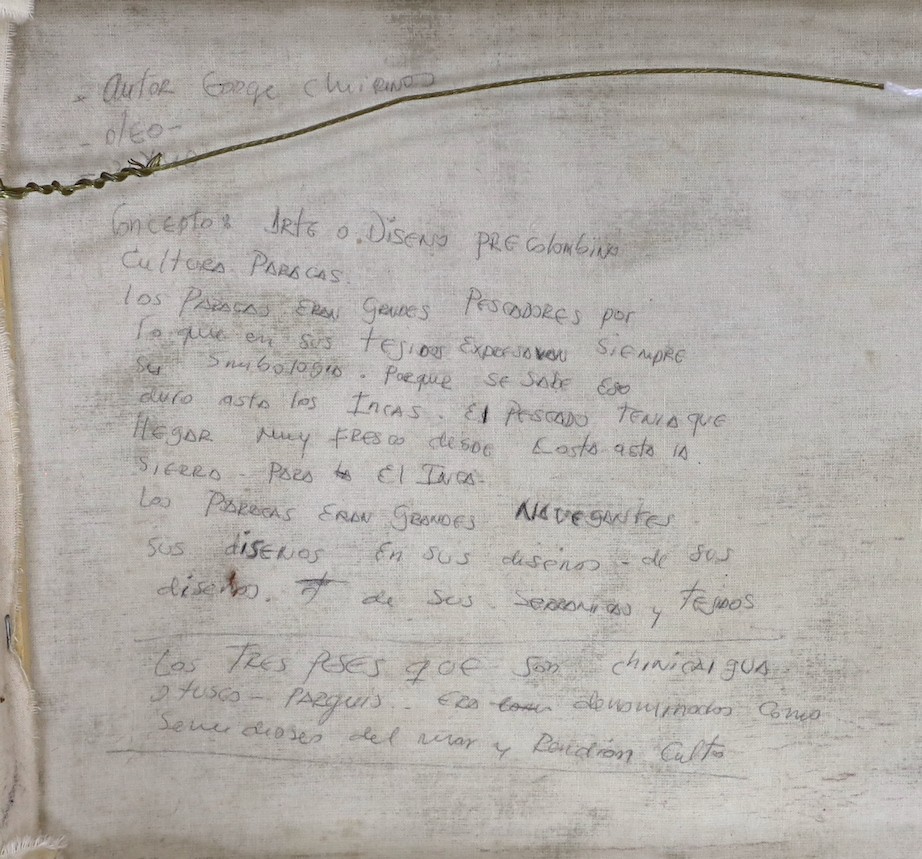 - Autor George Chirinos
- oleo -
Concepto: Arte o. Diseño PRE Colombino
Cultura PARACAS.
los PARACAS ERAN GRANDES PESCADORES por
lo que en sus tejidos EXPRESAVAN SIEMPRE
su Simbologia. PORQUE SE SABE ESO
duro asta los INCAS. El PESCADO TENIA QUE
llegar muy FRESCO desde Costa asta la
SIERRA - PARA El INCA.
Los PARACAS ERAN GRANDES NAVEGANTES
sus diseños En sus diseños - de sus
diseños. de sus. SERAMICAS y TEJIDOS
Los TRES PESES QUE son chinicaigua
PARQUIS.. ERA denominados como
Semi dioses del mar y Rendian Culto